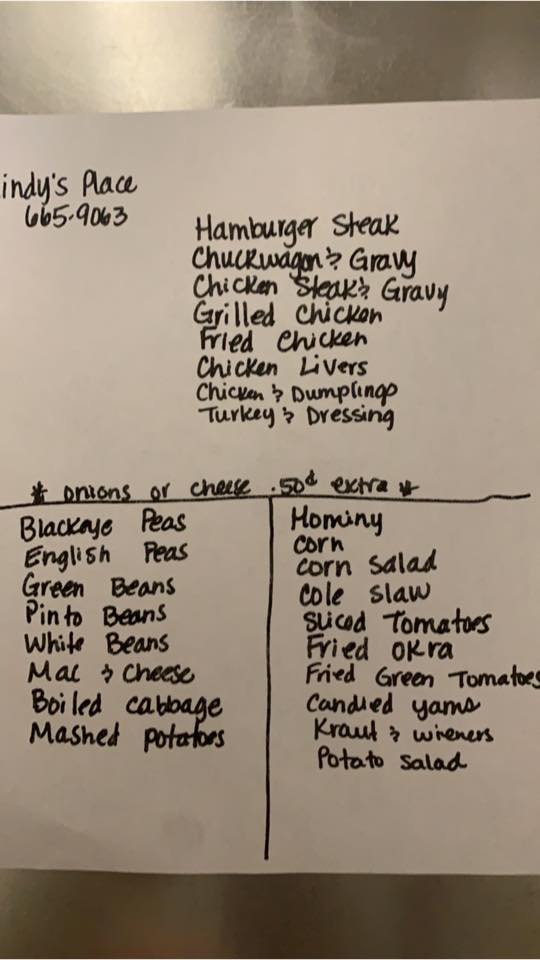 indy's Place
665-9063
Hamburger Steak
Chuckwagon & Gravy
Chicken Steak & Gravy
Grilled Chicken
Fried Chicken
Chicken Livers
Chicken & Dumplings
Turkey & Dressing
* onions or cheese .50¢ extra *
Blackeye Peas
English Peas
Green Beans
Pinto Beans
White Beans
Mac & Cheese
Boiled cabbage
Mashed potatoes
Hominy
corn
corn salad
cole slaw
Sliced Tomatoes
Fried okra
Fried Green Tomatoes
Candied yams
Kraut & wieners
Potato Salad